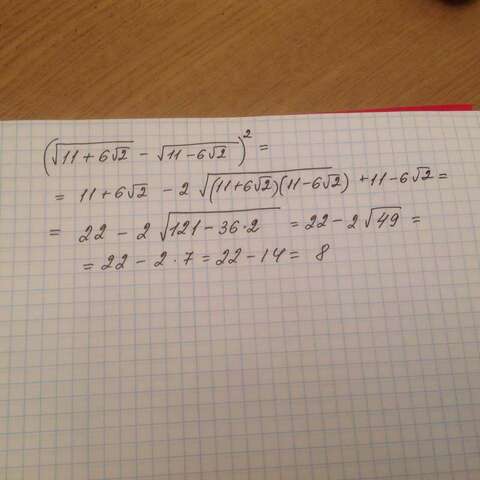 (√(11+6√2) - √(11-6√2))² =
= 11+6√2 - 2√((11+6√2)(11-6√2)) + 11-6√2 =
= 22 - 2√(121-36·2) = 22-2√49 =
= 22-2·7 = 22-14 = 8